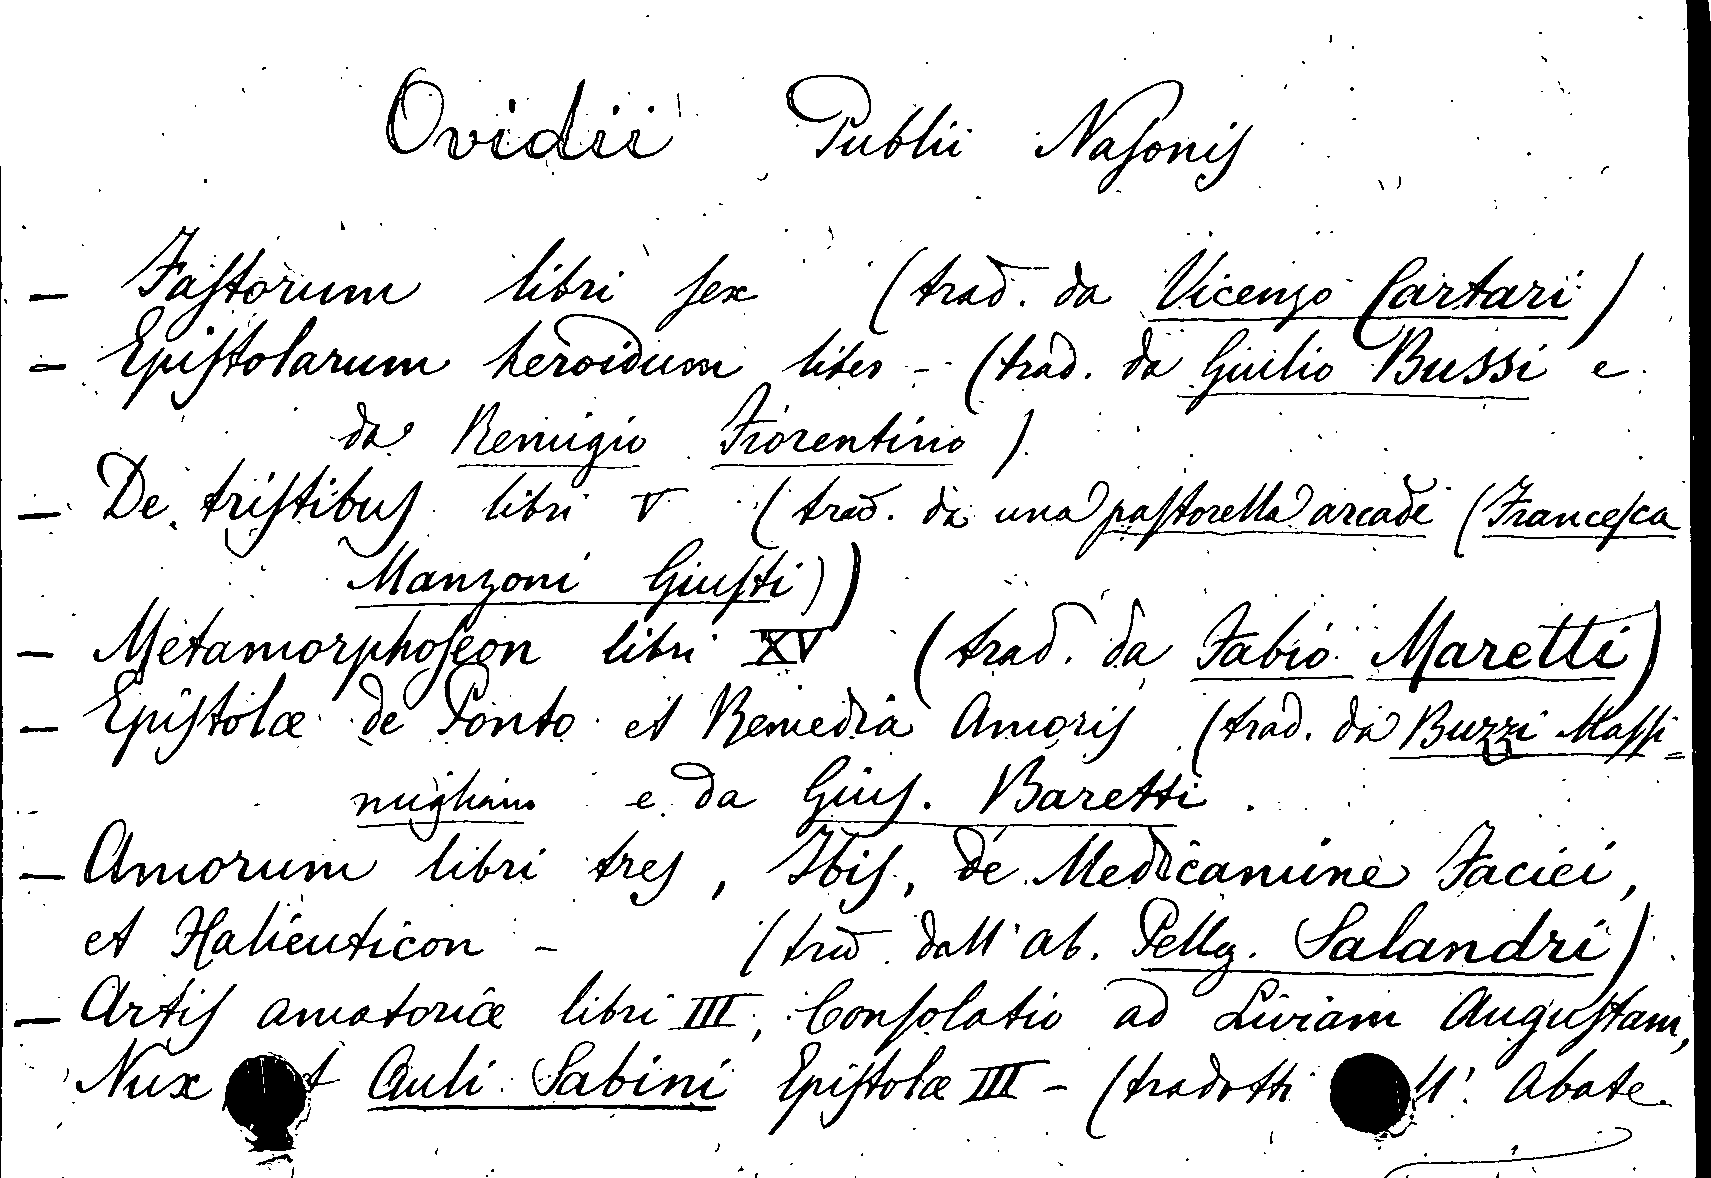 Ovidii Publii Nasonis
- Fastorum libri sex (trad. da Vicenzo Cartari)
- Epistolarum heroidum liber - (trad. da Giulio Bussi e
da Remigio Fiorentino).
- De tristibus libri V (trad. da una pastorella arcade (Francesca
Manzoni Giusti))
- Metamorphoseon libri XV (trad. da Fabio Maretti)
- Epistolæ de Ponto et Remedia Amoris (trad. da Buzzi Massi=
migliano e da Gius. Baretti.
- Amorum libri tres, Ibis, de Medicamine Faciei,
et Halieuticon - (trad. dall' ab. Pelleg. Salandri)
- Artis amatoriæ libri III, Consolatio ad Liviam Augustam,
Nux et Auli Sabini Epistolæ III - (tradotti ll' Abate